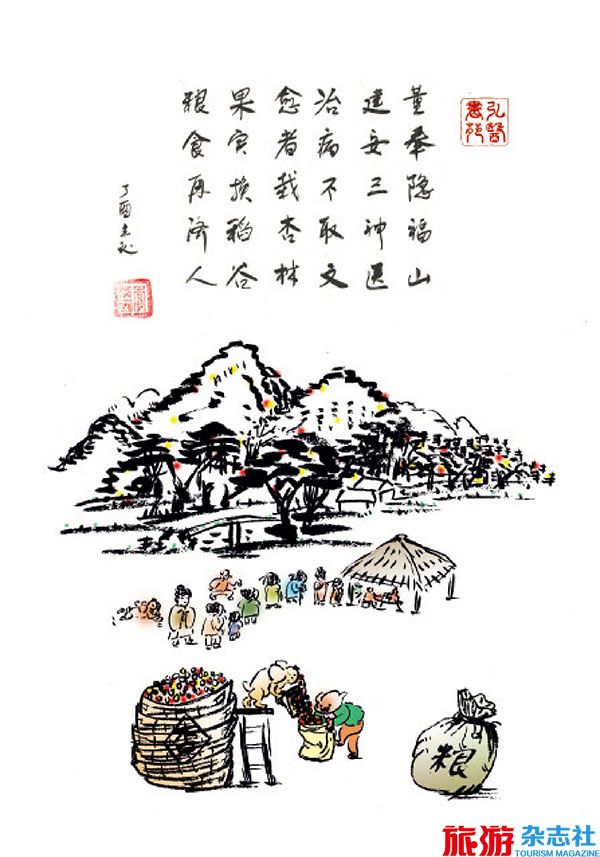 弘醫
書苑
董奉隐福山
建安三神医
治病不取文
愈者栽杏林
果实换稻谷
粮食再济人
丁酉
粮
旅游杂志社
TOURISM MAGAZINE